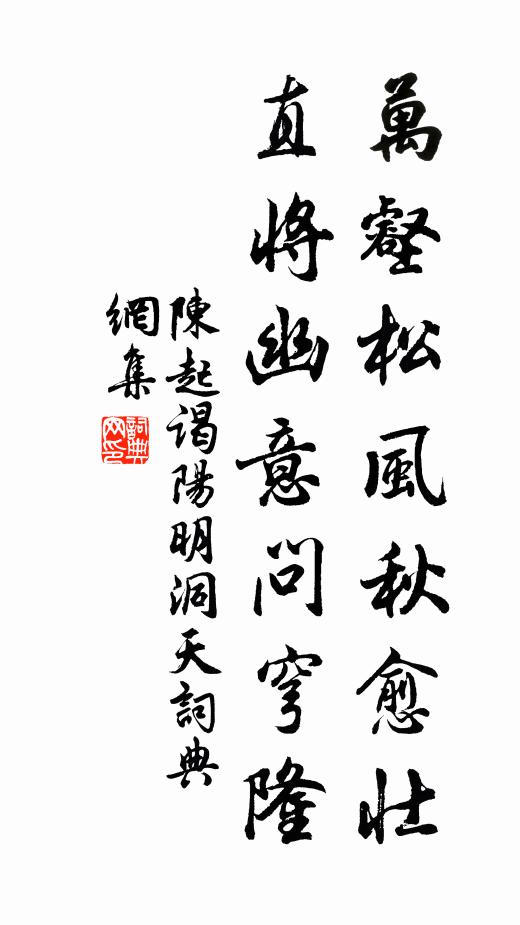 萬壑松風秋愈壯
直將幽意問穹隆
陳起謁陽明洞天詞典
網集
詞典網印